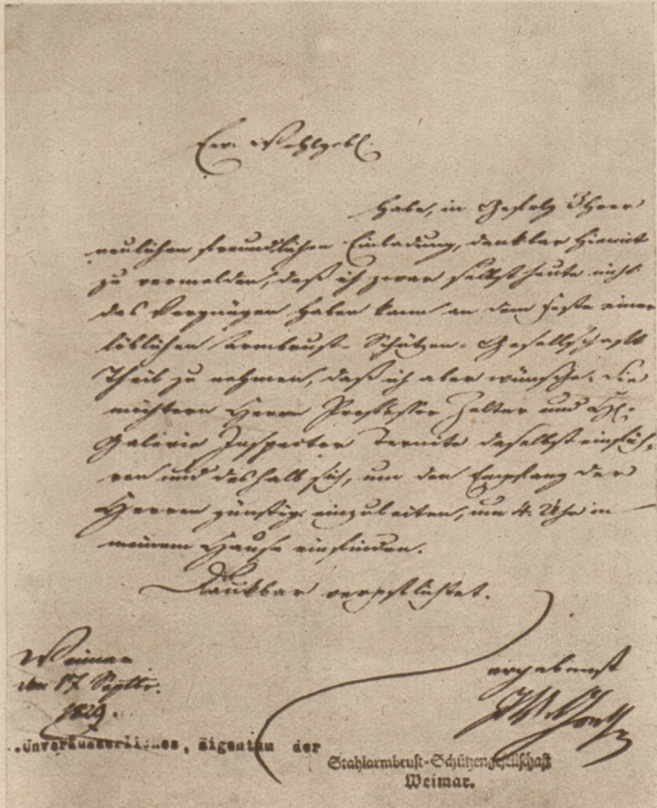 Ew. Wohlgeb.
habe, in Gefolg Ihrer
neulichen freundlichen Einladung, dankbar hiemit
zu vermelden, daß ich zwar selbst heute nicht
das Vergnügen haben kann an dem Feste einer
löblichen Armbrust-Schützen-Gesellschaft
Theil zu nehmen, daß ich aber wünsche: Sie
möchten Herrn Professor Zelter und H.
Galerie Inspector Ternite daselbst einfüh-
ren und deshalb sich, um den Empfang der
Herren günstig einzuleiten, um 4. Uhr in
meinem Hause einfinden.
Dankbar verpflichtet.
Weimar
den 17 Septbr.
1829.
ergebenst
JWvGoethe
Unveräusserliches Eigentum der
Stahlarmbrust-Schützengesellschaft
Weimar.